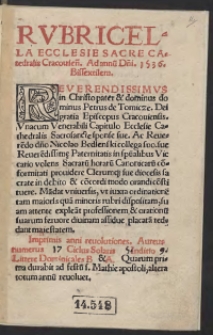 RVBRICEL-
LA ECCLESIE SACRE CA
tedralis Cracouień. Ad annū Dńi. 1536.
Bissextilem.
REVERENDISSIMVS
in Christo pater & dominus do
minus Petrus de Tomicze. Dei
gratia Episcopus Cracouiensis.
Vnacum Venerabili Capitulo Ecclesie Ca
thedralis
rēdo dńo Nicolao Bedlenski collega suo. sue
Reuerēdissime Paternitatis in spūalibus Vic
cario volens Sacrarū horarū Canonicarū
formitati prouidere Clerumq; sue diocesis sa
crate in debito & cōcordi modo orandi
nere. Mādat vniuersis, vt iuxta ordinationē
tam maioris quā minoris rubri dispositam, su
am attente explēat professionem & orationū
suarum feruore diuinam assidue placatā red
dant maiestatem.
Imprimis anni reuolutiones. Aureus
numerus 17 Ciclus Solaris Indictio 9
Littere Dominicales B A. Quarum pri
ma durabit ad festū s. Mathie apostoli, altera
totum annū reuoluet.
14.518